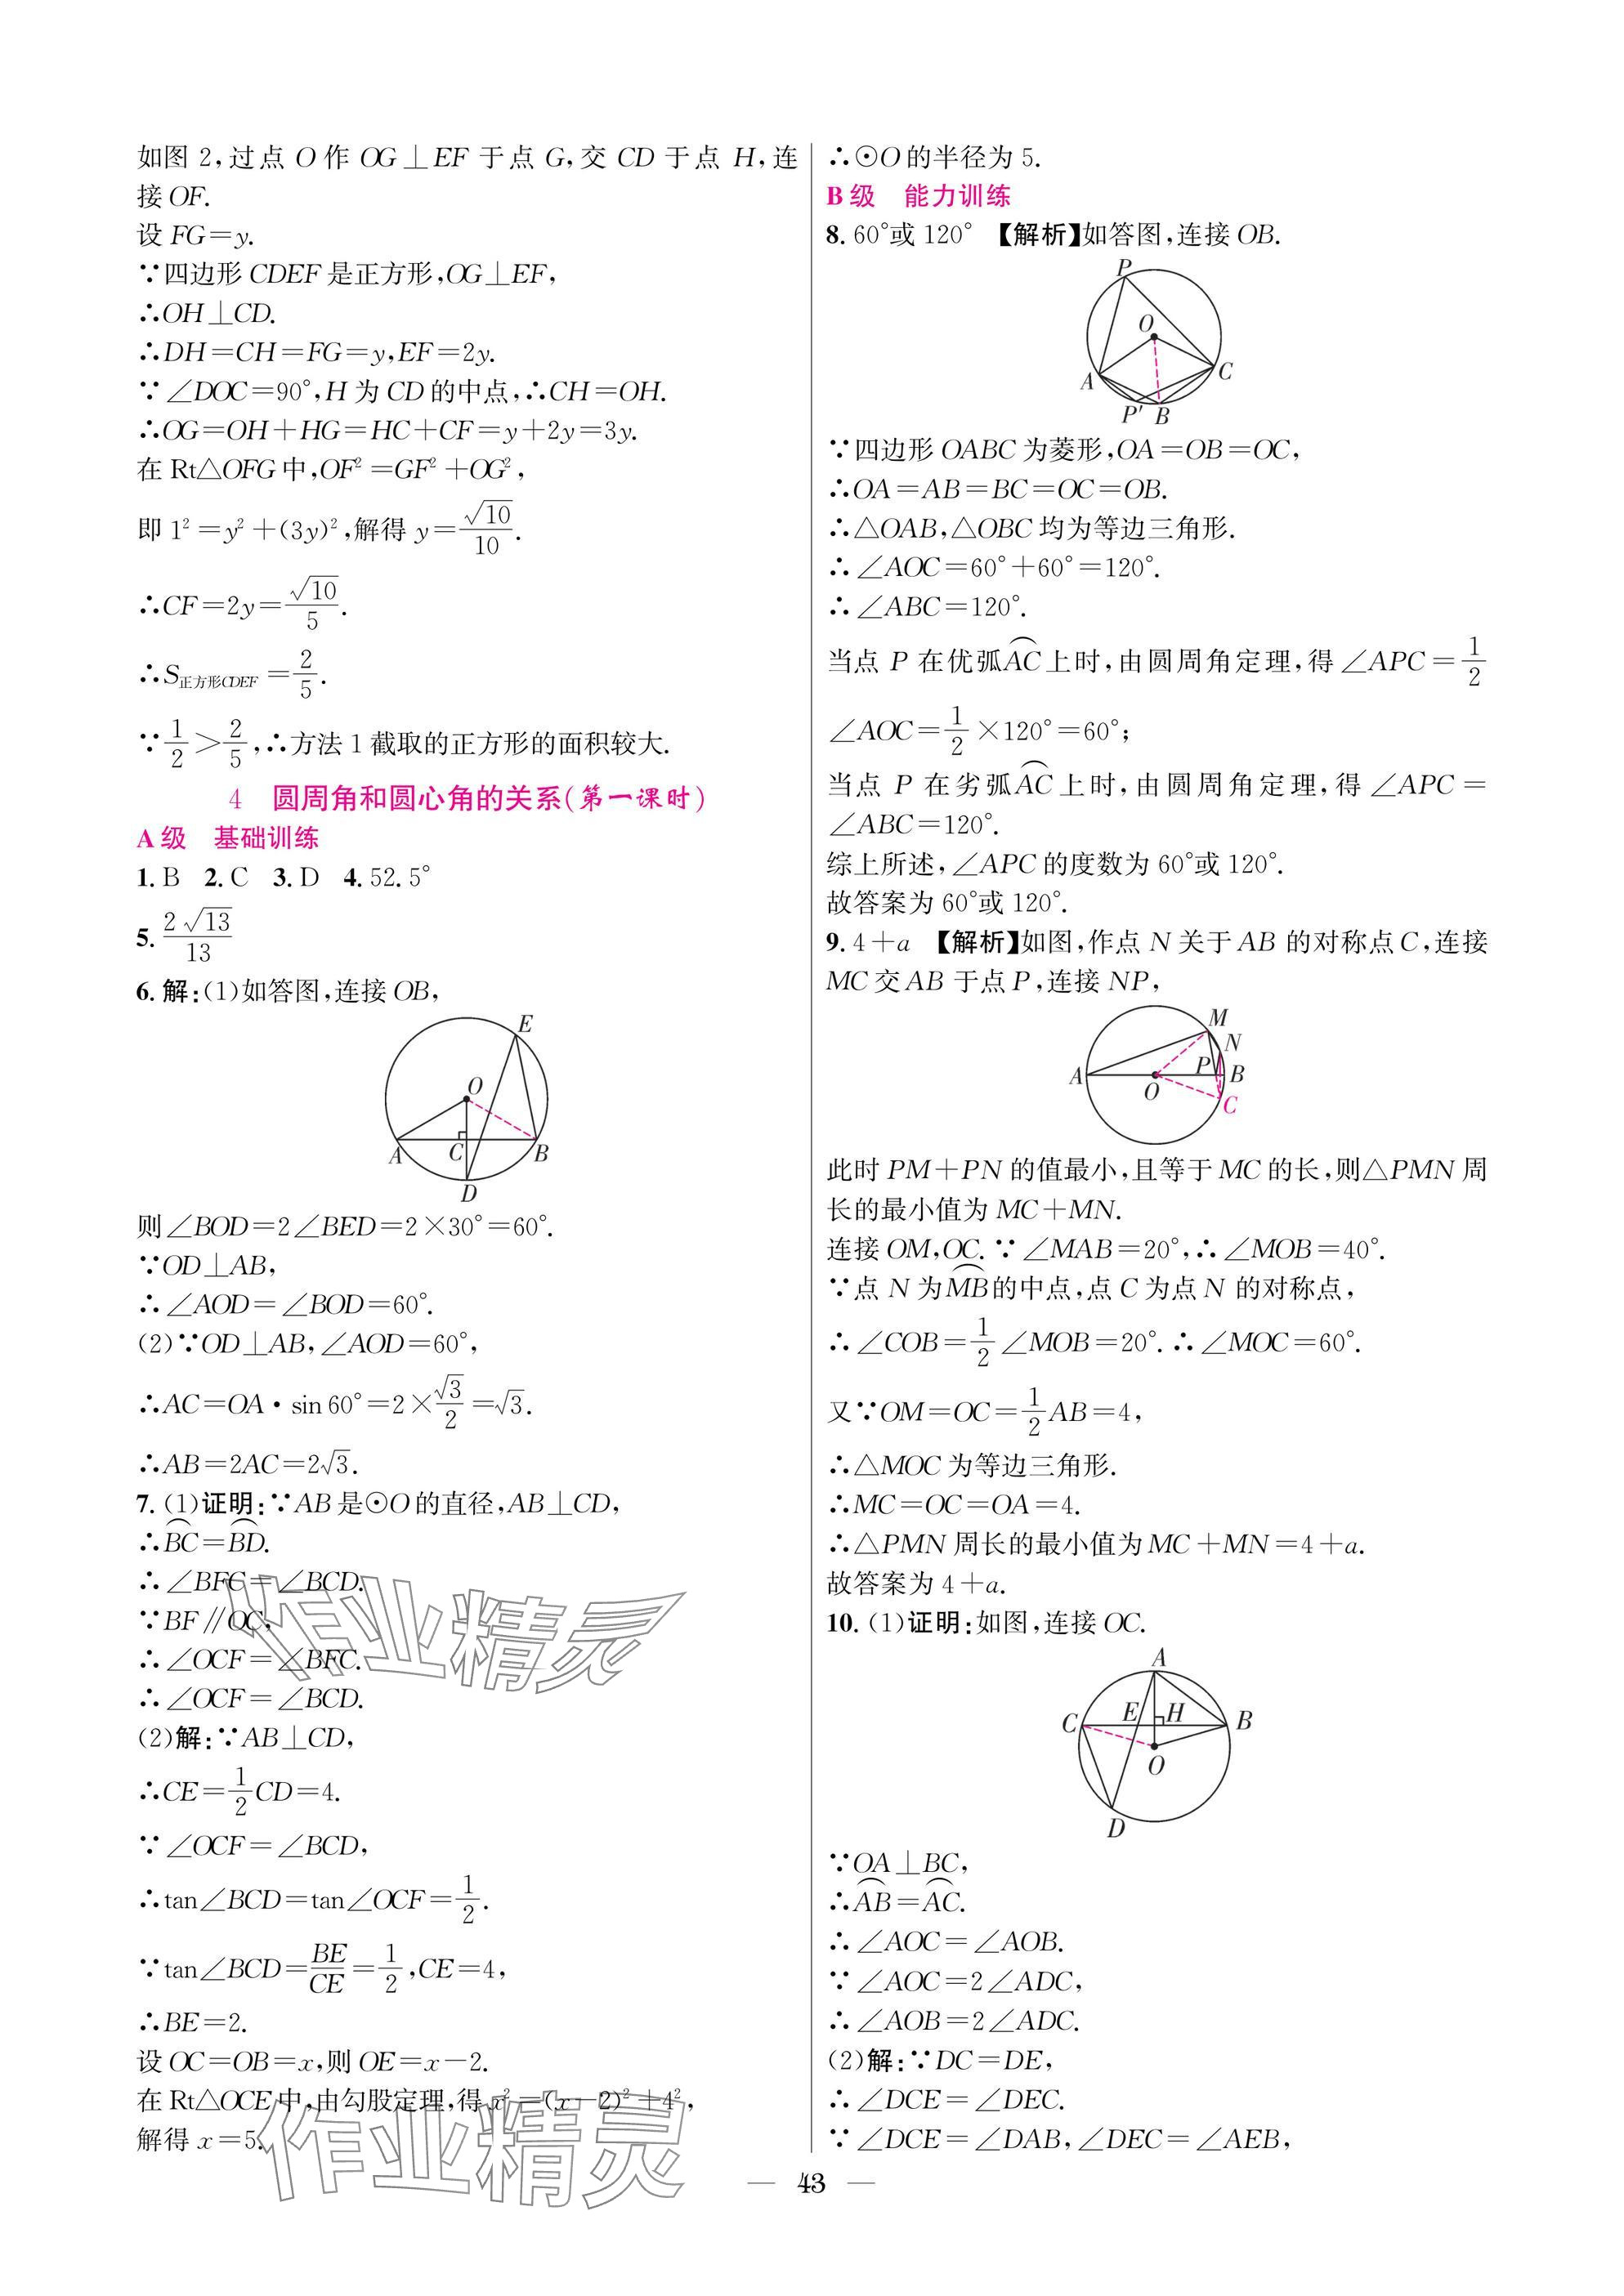 如图 2,过点 O 作 OG⊥EF 于点 G,交 CD 于点 H,连
接 OF.
设 FG=y.
∵四边形 CDEF 是正方形,OG⊥EF,
∴OH⊥CD.
∴DH=CH=FG=y,EF=2y.
∵∠DOC=90°,H 为 CD 的中点,∴CH=OH.
∴OG=OH+HG=HC+CF=y+2y=3y.
在 Rt△OFG 中,OF²=GF²+OG²,
即 1²=y²+(3y)²,解得 y=√10/10.
∴CF=2y=√10/5.
∴S正方形CDEF=2/5.
∵1/2>2/5,∴方法 1 截取的正方形的面积较大.
4 圆周角和圆心角的关系(第一课时)
A 级 基础训练
1. B 2. C 3. D 4. 52.5°
5. 2√13/13
6. 解:(1)如答图,连接 OB,
E
O
A C B
D
则∠BOD=2∠BED=2×30°=60°.
∵OD⊥AB,
∴∠AOD=∠BOD=60°.
(2)∵OD⊥AB,∠AOD=60°,
∴AC=OA·sin 60°=2×√3/2=√3.
∴AB=2AC=2√3.
7. (1)证明:∵AB 是⊙O 的直径,AB⊥CD,
∴⌒BC=⌒BD.
∴∠BFC=∠BCD.
∵BF∥OC,
∴∠OCF=∠BFC.
∴∠OCF=∠BCD.
(2)解:∵AB⊥CD,
∴CE=1/2CD=4.
∵∠OCF=∠BCD,
∴tan∠BCD=tan∠OCF=1/2.
∵tan∠BCD=BE/CE=1/2,CE=4,
∴BE=2.
设 OC=OB=x,则 OE=x-2.
在 Rt△OCE 中,由勾股定理,得 x²=(x-2)²+4²,
解得 x=5.
∴⊙O 的半径为 5.
B 级 能力训练
8. 60°或 120° 【解析】如答图,连接 OB.
P
O
A C
P′ B
∵四边形 OABC 为菱形,OA=OB=OC,
∴OA=AB=BC=OC=OB.
∴△OAB,△OBC 均为等边三角形.
∴∠AOC=60°+60°=120°.
∴∠ABC=120°.
当点 P 在优弧⌒AC上时,由圆周角定理,得∠APC=1/2
∠AOC=1/2×120°=60°;
当点 P 在劣弧⌒AC上时,由圆周角定理,得∠APC=
∠ABC=120°.
综上所述,∠APC 的度数为 60°或 120°.
故答案为 60°或 120°.
9. 4+a 【解析】如图,作点 N 关于 AB 的对称点 C,连接
MC 交 AB 于点 P,连接 NP,
M
N
A P B
O
C
此时 PM+PN 的值最小,且等于 MC 的长,则△PMN 周
长的最小值为 MC+MN.
连接 OM,OC.∵∠MAB=20°,∴∠MOB=40°.
∵点 N 为⌒MB的中点,点 C 为点 N 的对称点,
∴∠COB=1/2∠MOB=20°.∴∠MOC=60°.
又∵OM=OC=1/2AB=4,
∴△MOC 为等边三角形.
∴MC=OC=OA=4.
∴△PMN 周长的最小值为 MC+MN=4+a.
故答案为 4+a.
10. (1)证明:如图,连接 OC.
A
C E H B
O
D
∵OA⊥BC,
∴⌒AB=⌒AC.
∴∠AOC=∠AOB.
∵∠AOC=2∠ADC,
∴∠AOB=2∠ADC.
(2)解:∵DC=DE,
∴∠DCE=∠DEC.
∵∠DCE=∠DAB,∠DEC=∠AEB,
— 43 —
作业精灵
作业精灵